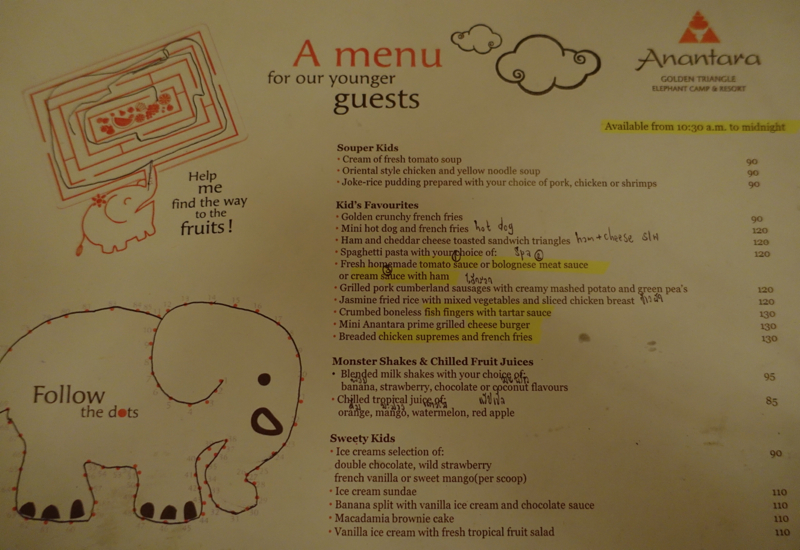 A menu
for our younger
guests
Anantara
GOLDEN TRIANGLE
ELEPHANT CAMP & RESORT
Available from 10:30 a.m. to midnight
Help
me
find the way
to the
fruits!
Souper Kids
• Cream of fresh tomato soup 90
• Oriental style chicken and yellow noodle soup 90
• Joke-rice pudding prepared with your choice of pork, chicken or shrimps 90
Kid's Favourites
• Golden crunchy french fries 90
• Mini hot dog and french fries hot dog 120
• Ham and cheddar cheese toasted sandwich triangles ham + cheese S/W 120
• Spaghetti pasta with your choice of: 120
• Fresh homemade tomato sauce or bolognese meat sauce
or cream sauce with ham
• Grilled pork cumberland sausages with creamy mashed potato and green pea's 120
• Jasmine fried rice with mixed vegetables and sliced chicken breast 120
• Crumbed boneless fish fingers with tartar sauce 130
• Mini Anantara prime grilled cheese burger 130
• Breaded chicken supremes and french fries 130
Monster Shakes & Chilled Fruit Juices
• Blended milk shakes with your choice of: 95
banana, strawberry, chocolate or coconut flavours
• Chilled tropical juice of: 85
orange, mango, watermelon, red apple
Sweety Kids
• Ice creams selection of: 90
double chocolate, wild strawberry
french vanilla or sweet mango(per scoop)
• Ice cream sundae 110
• Banana split with vanilla ice cream and chocolate sauce 110
• Macadamia brownie cake 110
• Vanilla ice cream with fresh tropical fruit salad 110
Follow
the dots